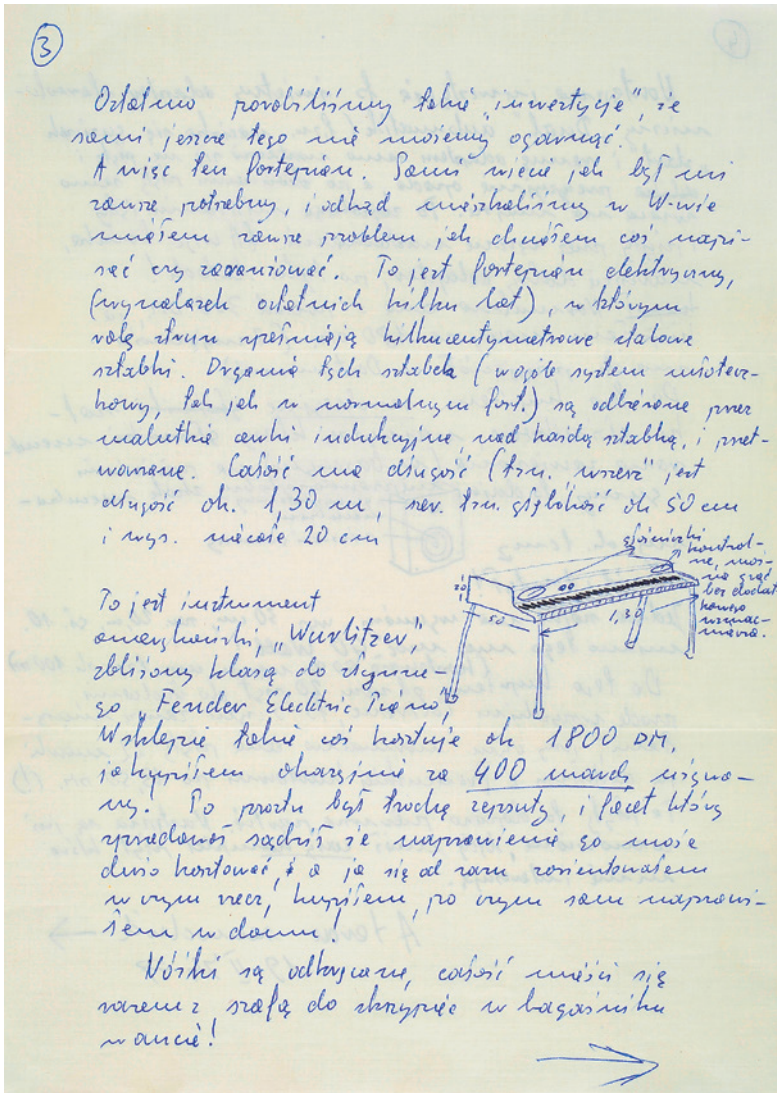 3
Ostatnio porobiliśmy takie "inwestycje", że
sami jeszcze tego nie możemy ogarnąć.
A więc ten fortepian. Sami wiecie jak był mi
zawsze potrzebny, i odkąd mieszkaliśmy w W-wie
miałem zawsze problem jak chciałem coś napi-
sać czy zaaranżować. To jest fortepian elektryczny,
(wynalazek ostatnich kilku lat), w którym
rolę strun spełniają kilkucentymetrowe stalowe
sztabki. Drgania tych sztabek (wogóle system młotecz-
kowy, tak jak w normalnym fort.) są odbierane przez
malutkie cewki indukcyjne nad każdą sztabką, i przet-
warzane. Całość ma długość (tzn. "wszerz" jest
długość ok. 1,30 m, zew. tzn. głębokość ok 50 cm
i wys. niecałe 20 cm
głośniczki
kontrol-
ne, moż-
na grać
bez dodat
kowego
wzmac-
niania.
20
50
1,30
To jest instrument
amerykański, "Wurlitzer",
zbliżony klasą do słynne-
go "Fender Electric Piano",
W sklepie takie coś kosztuje ok 1800 DM,
ja kupiłem okazyjnie za 400 marek używa-
ny. Po prostu był trochę zepsuty, i facet który
sprzedawał sądził że naprawienie go może
dużo kosztować, a ja się od razu zorientowałem
w czym rzecz, kupiłem, po czym sam naprawi-
łem w domu!
Nóżki są odkręcane, całość mieści się
razem z szafą do skrzypiec w bagażniku
w aucie!